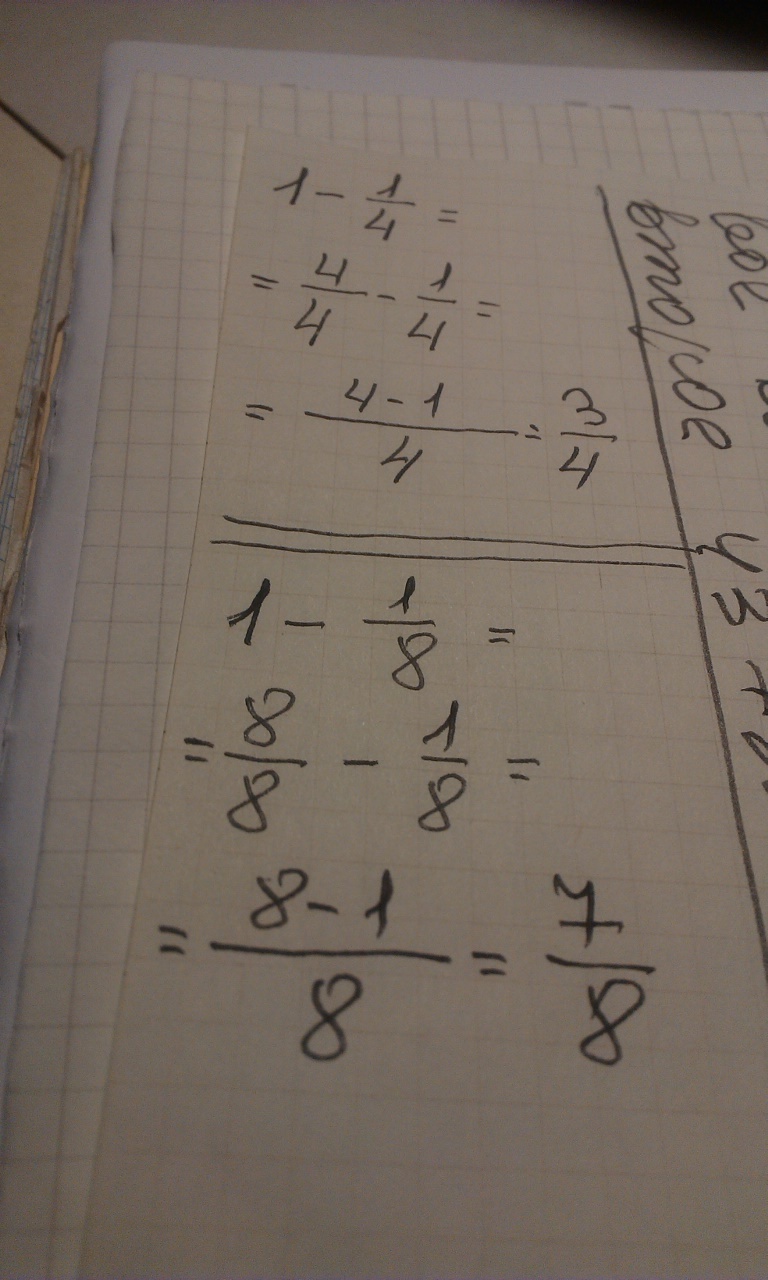 1 - 1/4 =
= 4/4 - 1/4 =
= (4 - 1)/4 = 3/4
1 - 1/8 =
= 8/8 - 1/8 =
= (8 - 1)/8 = 7/8